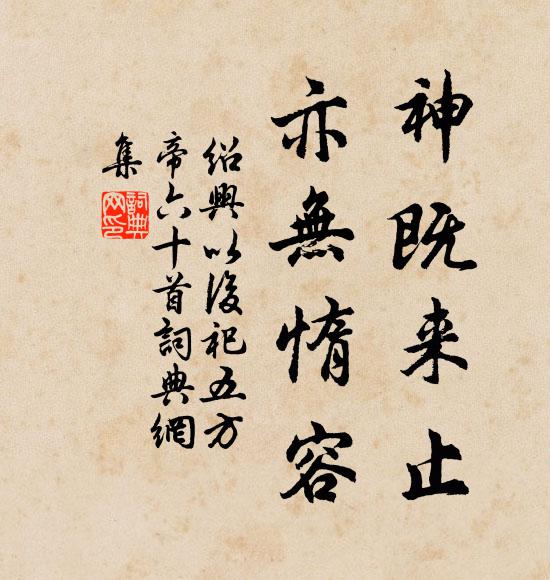 神既来止
亦無惰容
紹興以後祀五方
帝六十首詞典網
集
詞典网印